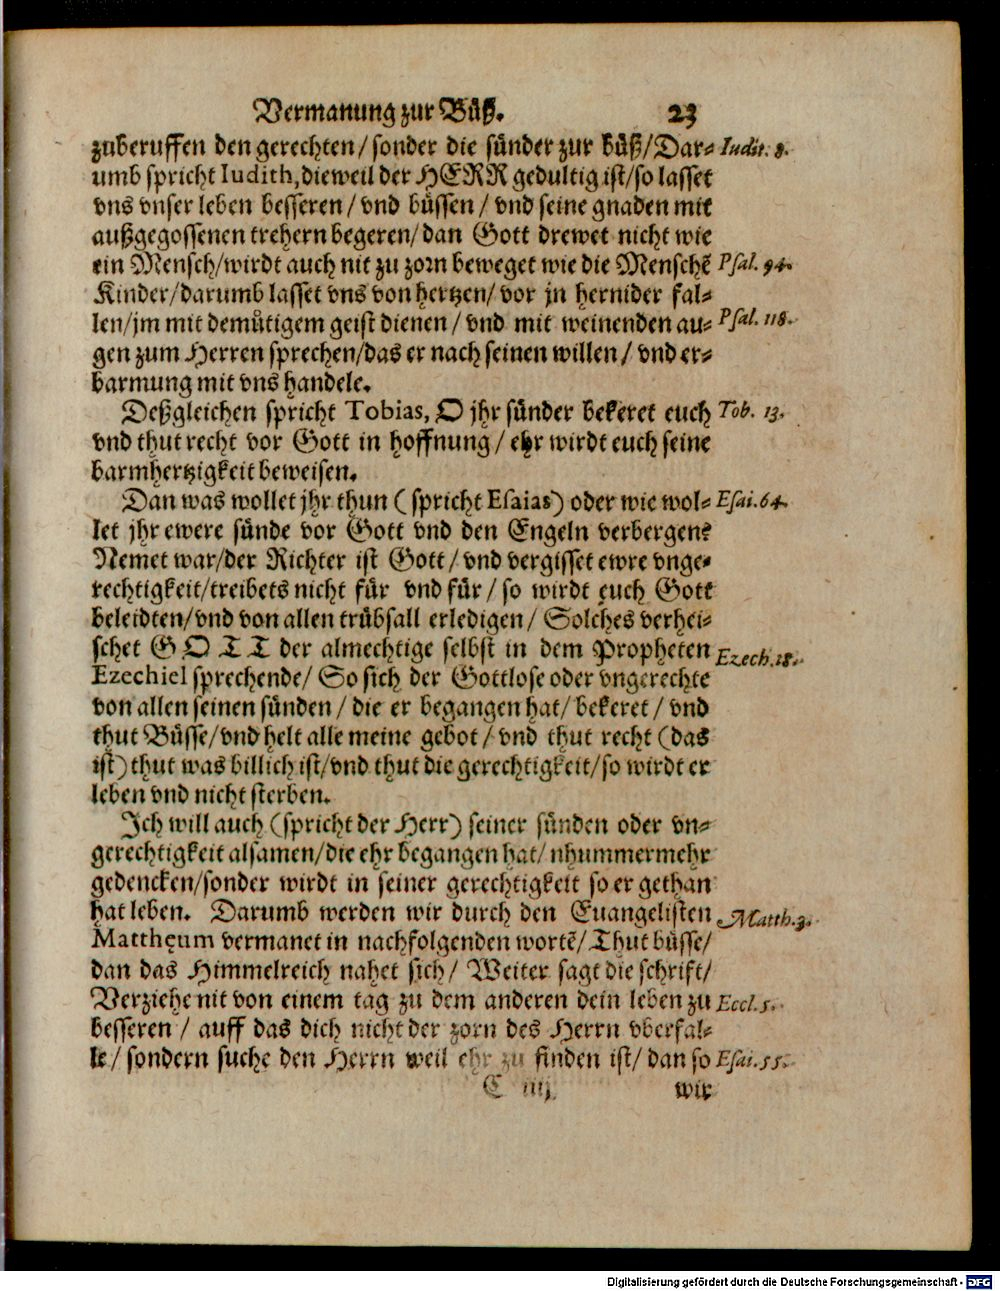 Vermanung zur Bůß. 23
zuberuffen den gerechten/ sonder die sünder zur bůß/ Dar- Iudit. 8.
umb spricht Iudith, dieweil der HERR gedultig ist/ so lasset
vns vnser leben besseren/ vnd büssen/ vnd seine gnaden mit
außgegossenen trehern begeren/ dan Gott drewet nicht wie
ein Mensch/ wirdt auch nit zu zorn beweget wie die Menschē Psal. 94.
Kinder/ darumb lasset vns von hertzen/ vor jn hernider fal-
len/ jm mit demůtigem geist dienen/ vnd mit weinenden au- Psal. 118.
gen zum Herren sprechen/ das er nach seinen willen/ vnd er-
barmung mit vns handele.
Deßgleichen spricht Tobias, O jhr sünder bekeret euch Tob. 13.
vnd thut recht vor Gott in hoffnung/ ehr wirdt euch seine
barmhertzigkeit beweisen.
Dan was wollet jhr thun (spricht Esaias) oder wie wol- Esai. 64.
let jhr ewere sünde vor Gott vnd den Engeln verbergen?
Nemet war/ der Richter ist Gott/ vnd vergisset ewre vnge-
rechtigkeit/ treibets nicht für vnd für/ so wirdt euch Gott
beleidten/ vnd von allen trübsall erledigen/ Solches verhei-
schet GOTT der almechtige selbst in dem Propheten Ezech. 18.
Ezechiel sprechende/ So sich der Gottlose oder vngerechte
von allen seinen sünden/ die er begangen hat/ bekeret/ vnd
thut Büsse/ vnd helt alle meine gebot/ vnd thut recht (das
ist) thut was billich ist/ vnd thut die gerechtigkeit/ so wirdt er
leben vnd nicht sterben.
Ich will auch (spricht der Herr) seiner sünden oder vn-
gerechtigkeit alsamen/ die ehr begangen hat/ nhummermehr
gedencken/ sonder wirdt in seiner gerechtigkeit so er gethan
hat leben. Darumb werden wir durch den Euangelisten Matth. 3.
Matthęum vermanet in nachfolgenden wortē/ Thut büsse/
dan das Himmelreich nahet sich/ Weiter sagt die schrift/
Verziehe nit von einem tag zu dem anderen dein leben zu Eccl. 5.
besseren/ auff das dich nicht der zorn des Herrn vberfal-
le/ sondern suche den Herrn weil ehr zu finden ist/ dan so Esai. 55.
C iiij. wir
Digitalisierung gefördert durch die Deutsche Forschungsgemeinschaft - DFG